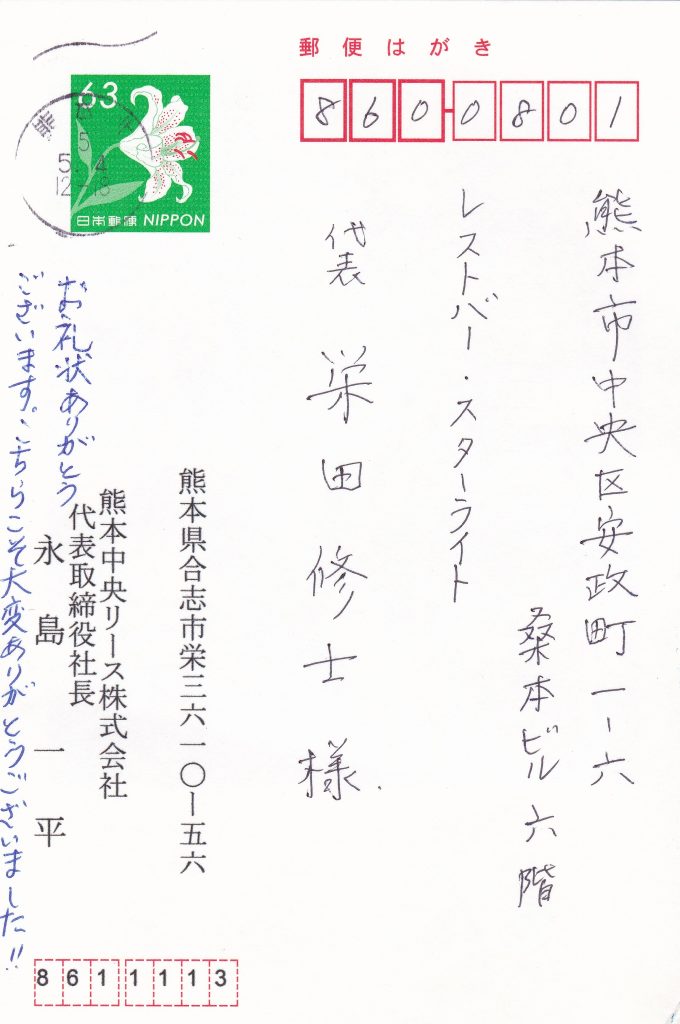 郵便はがき
8600801
熊本市中央区安政町一-六
桑本ビル六階
レストバー・スターライト
代表 栄田修士様
63
日本郵便 NIPPON
5.4
12-18
熊本県合志市栄三六一〇ー五六
熊本中央リース株式会社
代表取締役社長
永島一平
お礼状ありがとう
ございます。こちらこそ大変ありがとうございました!!
8611113